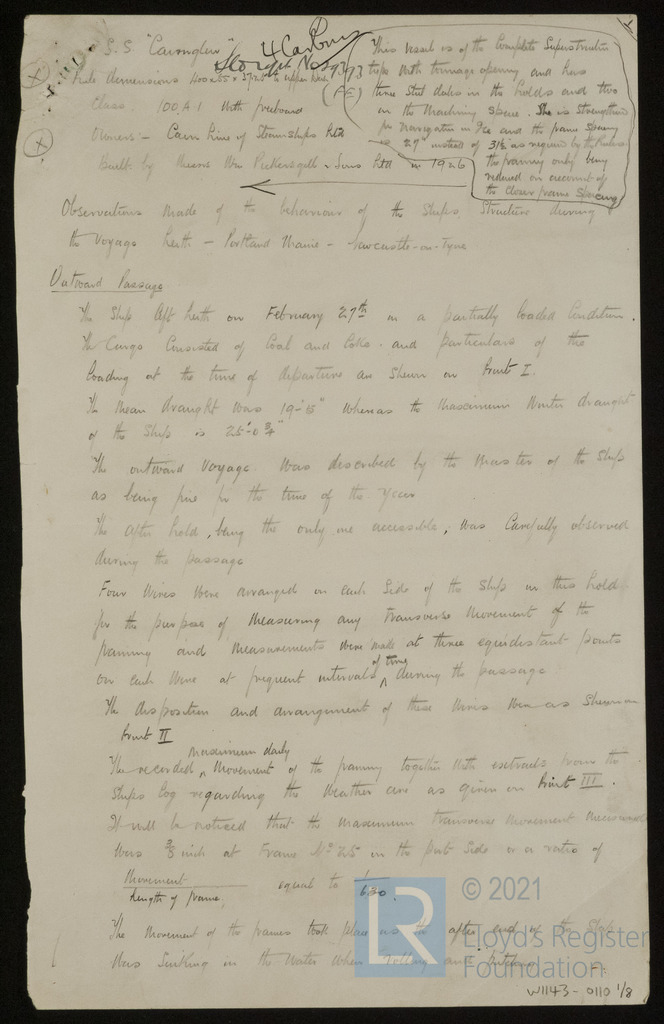 S.S "Cairnglen"
4 Carbons
This vessel is of the Complete Superstructure
type with tonnage opening and has
(FE) three steel decks in the holds and two
in the Machinery space. She is strengthened
for navigation in Ice and the frame spacing
is 27" instead of 31½ as required by the Rules
the framing only being
reduced on account of
the closer frame spacing
dimensions 400 x 55 x to upper deck
Class 100 A 1 With freeboard
Owners - Cairn Line of Steamships Ltd
Built by Messrs Wm Pickersgill & Sons Ltd in 1926
Observations made of the behaviour of the Ships Structure during
the Voyage Leith - Portland Maine - Newcastle-on-Tyne
Outward Passage
The Ship left Leith on February 27th in a partially loaded Condition.
The Cargo Consisted of Coal and Coke. and particulars of the
loading at the time of departure are Shewn on Print I.
The Mean draught was 19'- Whereas the Maximum Winter draught
of the Ship is 25'-6¾"
The outward Voyage was described by the Master of the Ship
as being fine for the time of the year
The After hold, being the only one accessible, was Carefully observed
during the passage
Four Wires Were arranged on each Side of the Ship in this hold
for the purpose of Measuring any transverse Movement of the
framing and Measurements Were made at three equidistant points
on each Wire at frequent intervals of time during the passage
The disposition and arrangement of these Wires Were as Shewn on
Print II
The recorded maximum daily Movement of the framing together With extracts from the
Ships Log regarding the Weather are as given on Print III.
It will be noticed that the maximum transverse Movement Measured
Was ⅜ inch at Frame No 25 on the port Side or a ratio of
Movement
Length of frame, equal to 1/630.
The Movement of the frames took place as the after end of the Ship
Was Sinking in the Water When rolling and pitching
© 2021
Lloyd's Register
Foundation
LR
W1143 - 0110 1/8